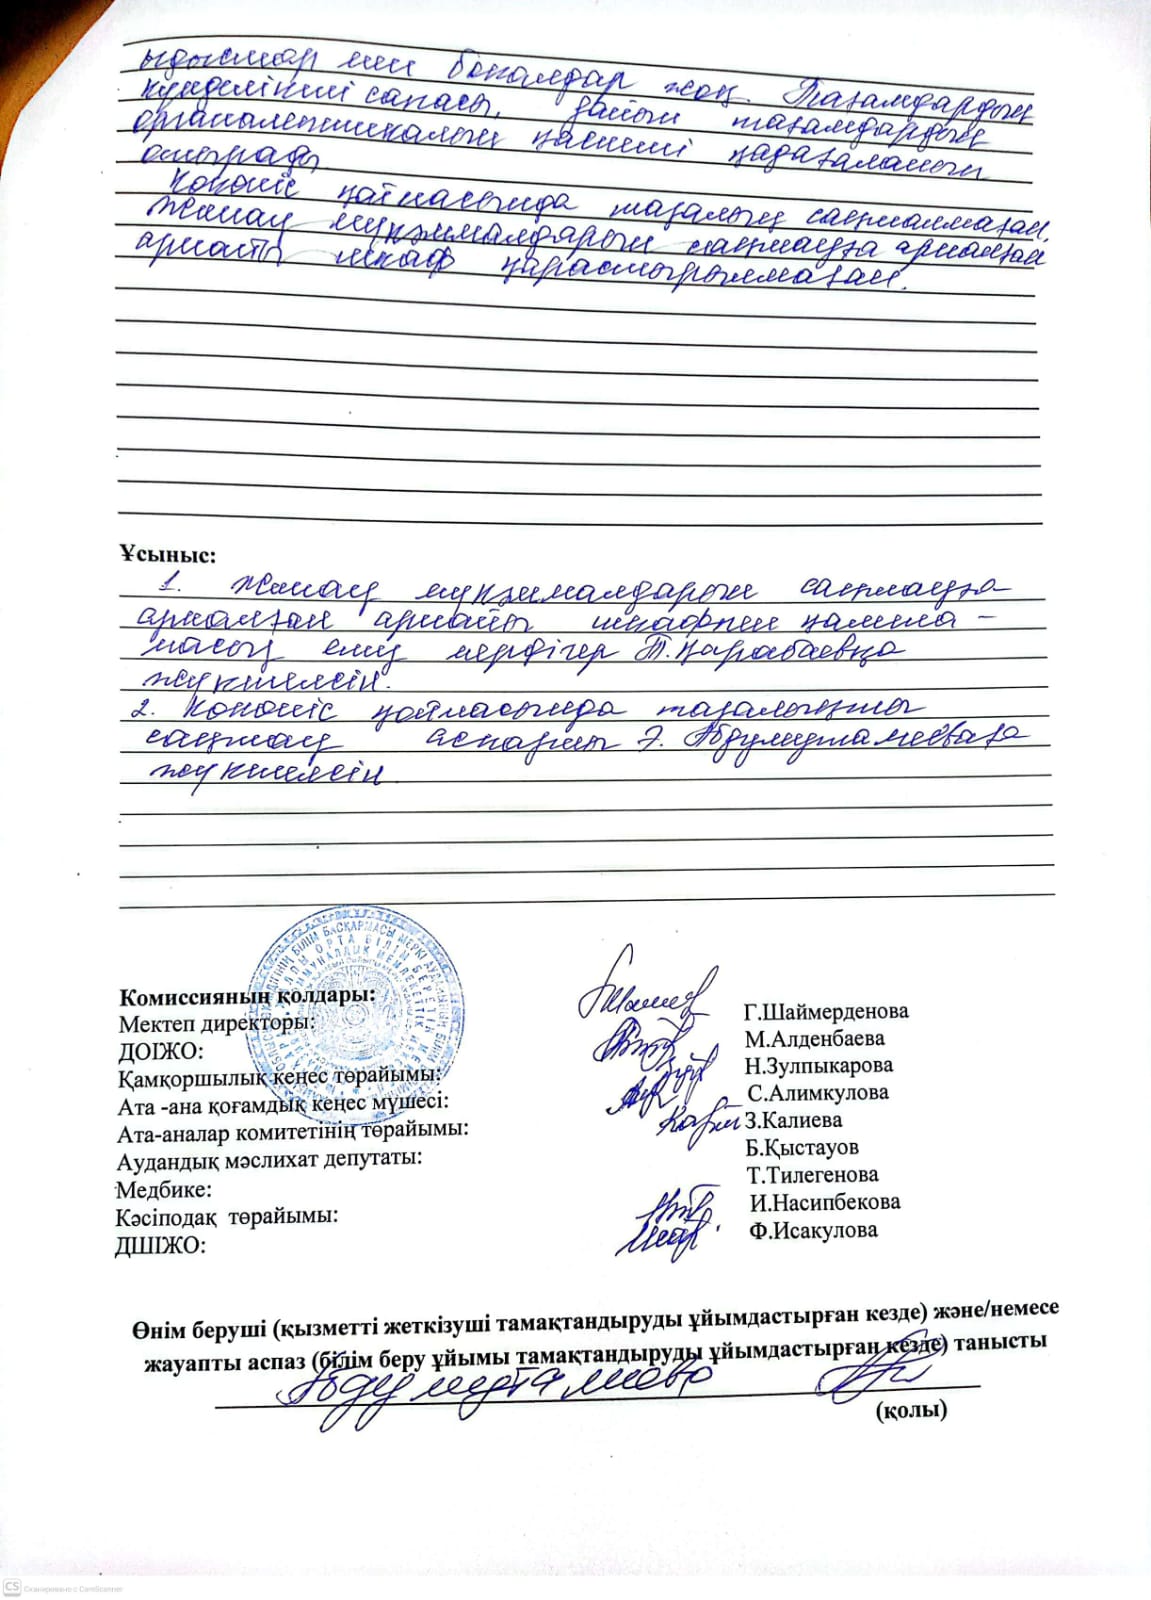 ыдыстар мен бокалдар жоқ. Тағамдардың
күнделікті сапасы, дайын тағамдардың
органолептикалық қадағаланып
отырады
Көкөніс қоймасында тазалық сақталмаған.
Жинау мүкәммалдарын сақтауға арналған
арнайы шкаф қарастырылмаған.
Ұсыныс:
1. Жинау мүкәммалдарын сақтауға
арналған арнайы шкафпен қамтама-
масыз ету мердігер Т.Қарабаевқа
жүктелсін.
2. Көкөніс қоймасында тазалықты
сақтау аспазшы Э.
жүктелсін.
Комиссияның қолдары:
Мектеп директоры: Г.Шаймерденова
ДОІЖО: М.Алденбаева
Қамқоршылық кеңес төрайымы: Н.Зулпыкарова
Ата -ана қоғамдық кеңес мүшесі: С.Алимкулова
Ата-аналар комитетінің төрайымы: З.Калиева
Аудандық мәслихат депутаты: Б.Қыстауов
Медбике: Т.Тилегенова
Кәсіподақ төрайымы: И.Насипбекова
ДШІЖО: Ф.Исакулова
Өнім беруші (қызметті жеткізуші тамақтандыруды ұйымдастырған кезде) және/немесе
жауапты аспаз (білім беру ұйымы тамақтандыруды ұйымдастырған кезде) танысты
(қолы)
CS Сканировано с CamScanner